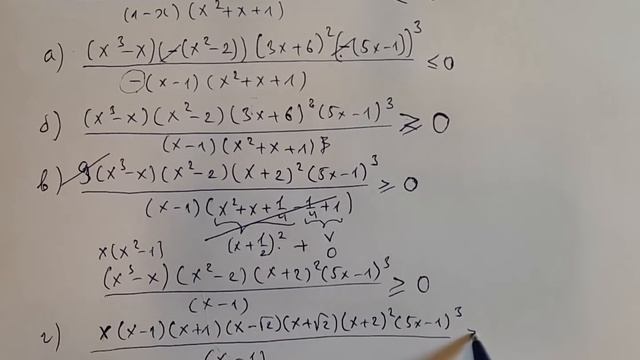 (1-x) (x²+x+1)
а) (x³-x)(-(x²-2))(3x+6)²(-(5x-1))³ ≤ 0
-(x-1)(x²+x+1)
б) (x³-x)(x²-2)(3x+6)²(5x-1)³ ≥ 0
(x-1)(x²+x+1)
в) 9(x³-x)(x²-2)(x+2)²(5x-1)³ ≥ 0
(x-1)(x²+x+1/4-1/4+1)
x(x²-1) (x+1/2)² + ∨ 0
(x³-x)(x²-2)(x+2)²(5x-1)³ ≥ 0
(x-1)
г) x(x-1)(x+1)(x-√2)(x+√2)(x+2)²(5x-1)³
(x-1)